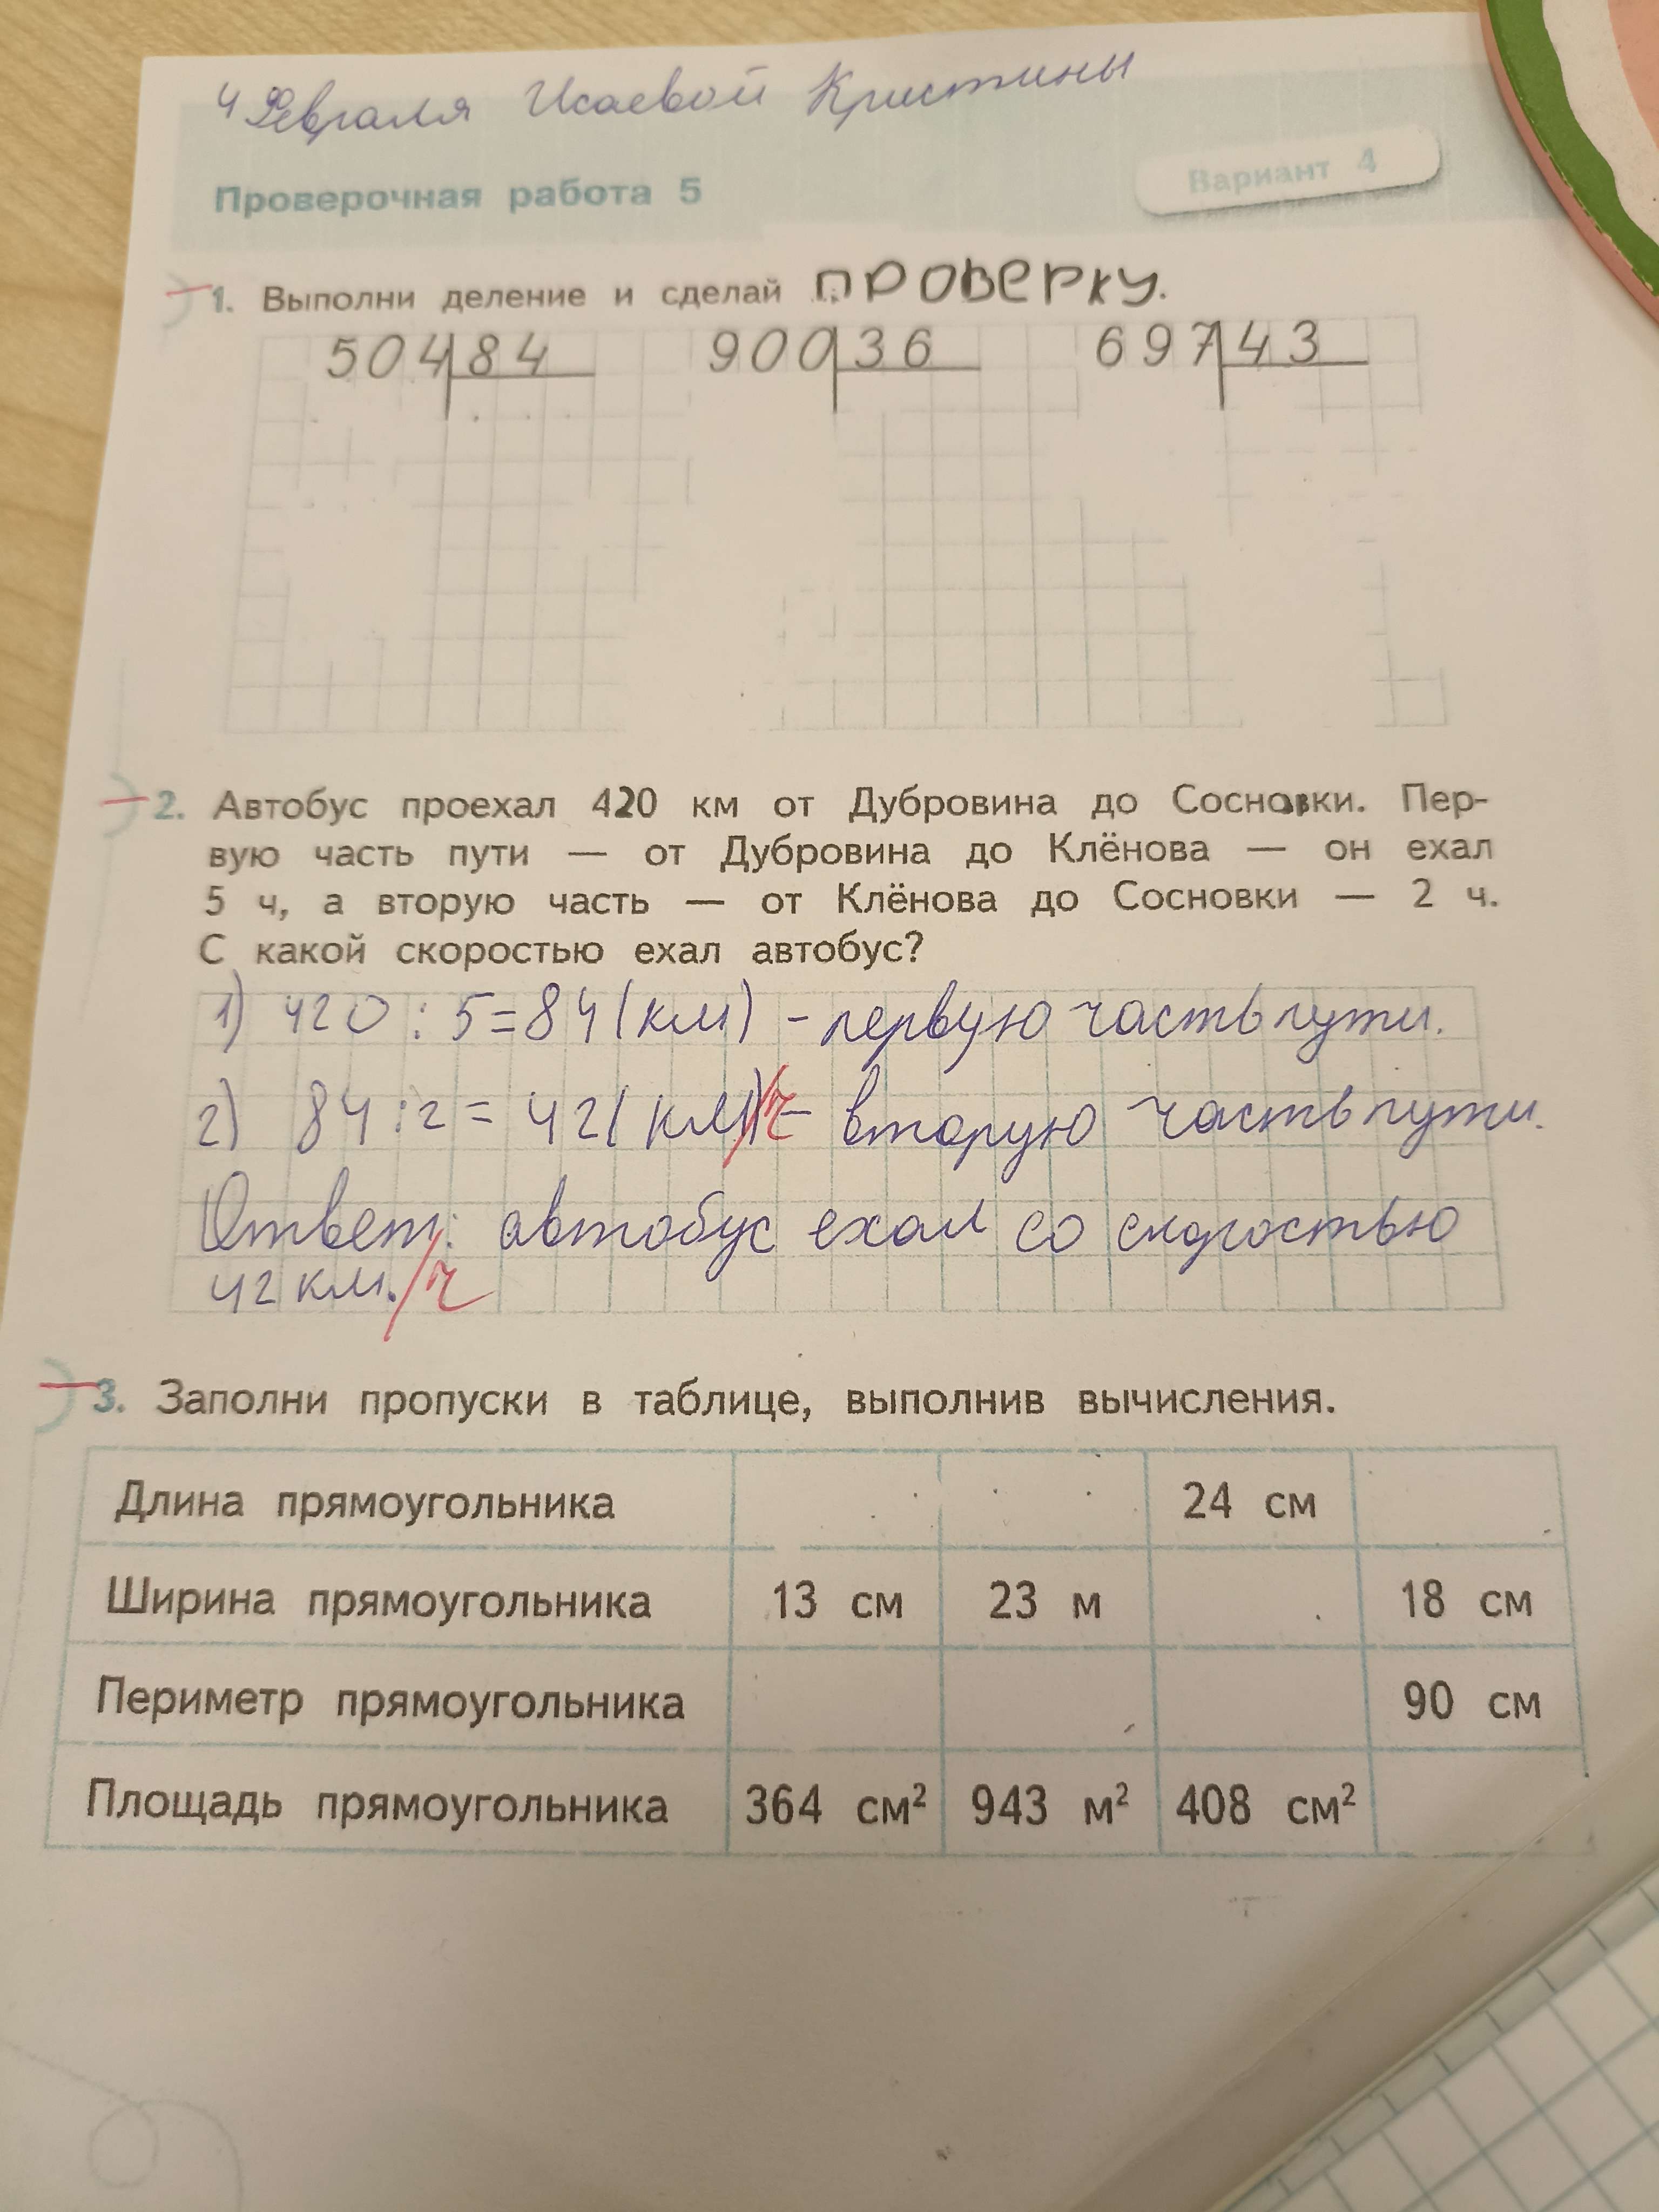 4 Февраля Исаевой Кристины
Проверочная работа 5
Вариант 4
1. Выполни деление и сделай проверку.
504 84 900 36 697 43
2. Автобус проехал 420 км от Дубровина до Сосновки. Пер-
вую часть пути — от Дубровина до Клёнова — он ехал
5 ч, а вторую часть — от Клёнова до Сосновки — 2 ч.
С какой скоростью ехал автобус?
1) 420 : 5 = 84 (км) - первую часть пути.
2) 84 : 2 = 42 (км)/ч - вторую часть пути.
Ответ: автобус ехал со скоростью
42 км./ч
3. Заполни пропуски в таблице, выполнив вычисления.
Длина прямоугольника 24 см
Ширина прямоугольника 13 см 23 м 18 см
Периметр прямоугольника 90 см
Площадь прямоугольника 364 см² 943 м² 408 см²